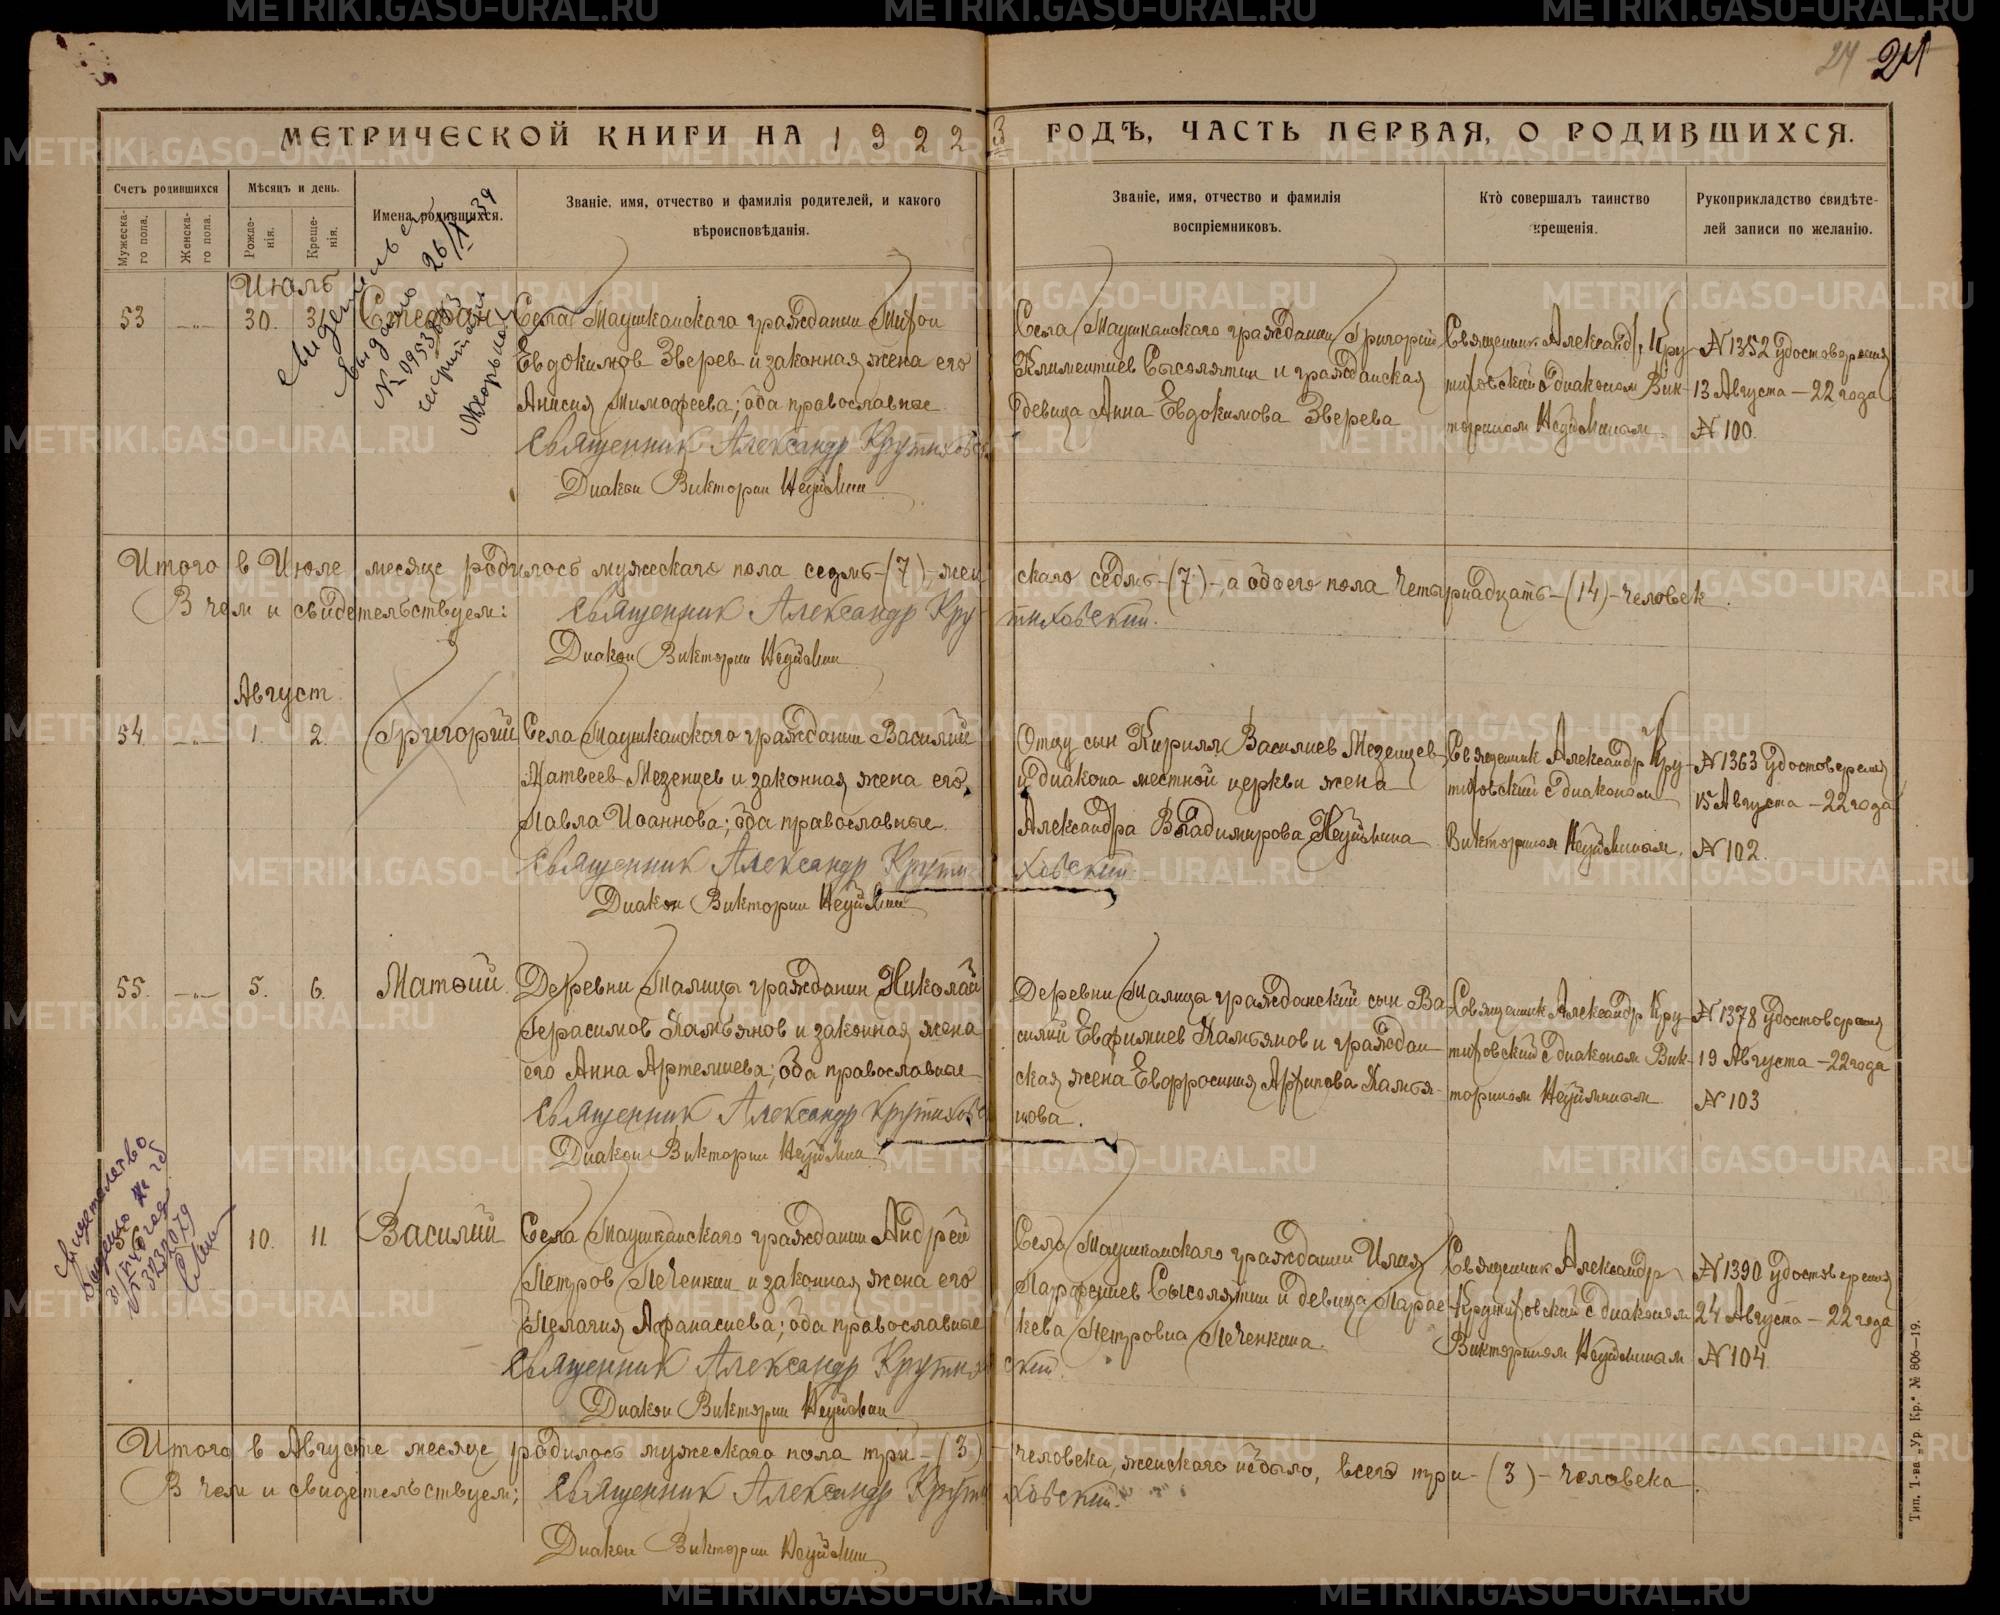 24 24
МЕТРИЧЕСКОЙ КНИГИ НА 1922 3 ГОДЪ, ЧАСТЬ ПЕРВАЯ, О РОДИВШИХСЯ.
Счетъ родившихся
Мужеска-
го пола.
Женска-
го пола.
Мѣсяцъ и день.
Рожде-
нія.
Креще-
нія.
Имена родившихся.
Званіе, имя, отчество и фамилія родителей, и какого
вѣроисповѣданія.
Званіе, имя, отчество и фамилія
воспріемниковъ.
Кто совершалъ таинство
крещенія.
Рукоприкладство свидѣте-
лей записи по желанію.
Июль
53 —"— 30. 31. Стефан
Села Таушканскаго гражданин Тифон
Евдокимов Зверев и законная жена его
Анисия Тимофеева; оба православные
Священник Александр Крутиховск
Диакон Викторин Неуймин
Села Таушканскаго гражданин Григорий
Климентиев Сысолятин и гражданская
девица Анна Евдокимова Зверева
Священник Александр Кру-
тиховский с диаконом Вик-
торином Неуйминым
№ 1352 удостоверения
13 Августа — 22 года
№ 100.
Итого в Июле месяце родилось мужескаго пола седмь-(7)-жен
скаго седмь-(7)-, а обоего пола четырнадцать-(14)-человек.
В чем и свидетельствуем: Священник Александр Кру-
тиховский.
Диакон Викторин Неуймин
Август
54. —"— 1. 2. Григорий
Села Таушканскаго гражданин Василий
Матвеев Мезенцев и законная жена его
Павла Иоаннова; оба православные
Священник Александр Крути-
ховский
Диакон Викторин Неуймин
Отцу сын Кирилл Василиев Мезенцев
и диакона местной церкви жена
Александра Владимирова Неуймина
Священник Александр Кру-
тиховский с диаконом
Викторином Неуйминым.
№ 1363 удостоверения
15 Августа — 22 года
№ 102.
55. —"— 5. 6. Матѳий.
Деревни Талицы гражданин Николай
Герасимов Памьянов и законная жена
его Анна Артемиева; оба православные
Священник Александр Крутиховс
Диакон Викторин Неуймин
Деревни Талицы гражданский сын Ва-
силий Евфимиев Памьянов и граждан-
ская жена Евфросиния Архипова Памья-
нова.
Священник Александр Кру-
тиховский с диаконом Вик-
торином Неуйминым
№ 1378 удостоверения
19 Августа — 22 года
№ 103
10. 11. Василий
Села Таушканскаго гражданин Андрей
Петров Печенкин и законная жена его
Пелагия Афанасиева; оба православные
Священник Александр Крутихо
ский
Диакон Викторин Неуймин
Села Таушканскаго гражданин Илия
Парфениев Сысолятин и девица Парас-
кева Петровна Печенкина.
Священник Александр
Крутиховский с диаконом
Викторином Неуйминым
№ 1390 удостоверения
24 Августа — 22 года
№ 104.
Итого в Августе месяце родилось мужескаго пола три-(3)
человека, женскаго небыло, всего три-(3)-человека.
В чем и свидетельствуем; Священник Александр Крути
ховский.
Диакон Викторин Неуймин
Свидетельство
Тип. Т-ва „Ур. Кр." № 806—19.
METRIKI.GASO-URAL.RU